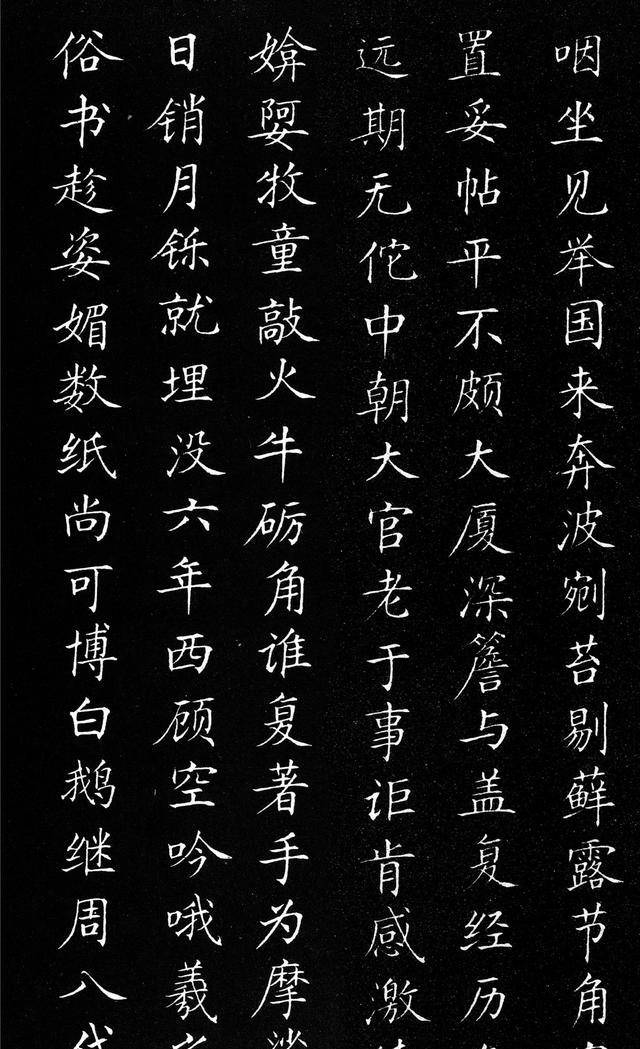 咽坐见举国来奔波剜苔剔藓露节角
置妥帖平不颇大厦深簷与盖复经历
远期无佗中朝大官老于事讵肯感激
媕婴牧童敲火牛砺角谁复著手为摩
日销月铄就埋没六年西顾空吟哦羲
俗书趁姿媚数纸尚可博白鹅继周八代